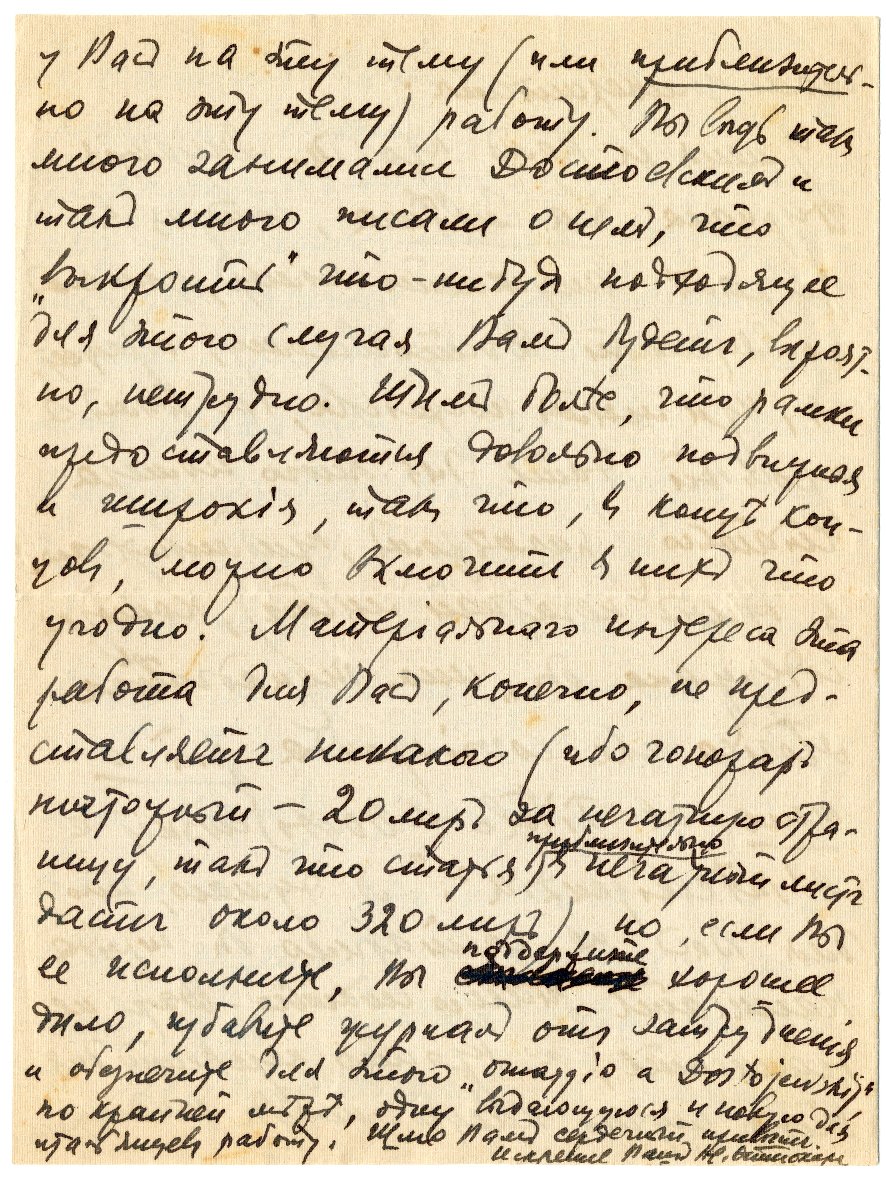 у Васъ на эту тему (или приблизитель-
но на эту тему) работу. Вы вѣдь такъ
много занимались Достоевскимъ и
такъ много писали о немъ, что
„выкроить" что-нибудь подходящее
для этого случая Вамъ будетъ, вѣроят-
но, нетрудно. Тѣмъ болѣе, что рамки
предоставляются довольно подвижныя
и широкія, такъ что, въ концѣ кон-
цовъ, можно включить въ нихъ что
угодно. Матеріальнаго интереса эта
работа для Васъ, конечно, не пред-
ставляетъ никакого (ибо гонораръ
ничтожный – 20 лиръ за печатную стра-
ницу, такъ что статья въ приблизительно печатный листъ
дастъ около 320 лиръ), но, если Вы
ее исполните, Вы поддержите хорошее
дѣло, избавите журналъ отъ затрудненія
и обезпечите для этого „omaggio a Dostojewskij",
по крайней мѣрѣ, одну выдающуюся и новую для
итальянцевъ работу. Шлю Вамъ сердечный привѣтъ.
Искренне Вашъ